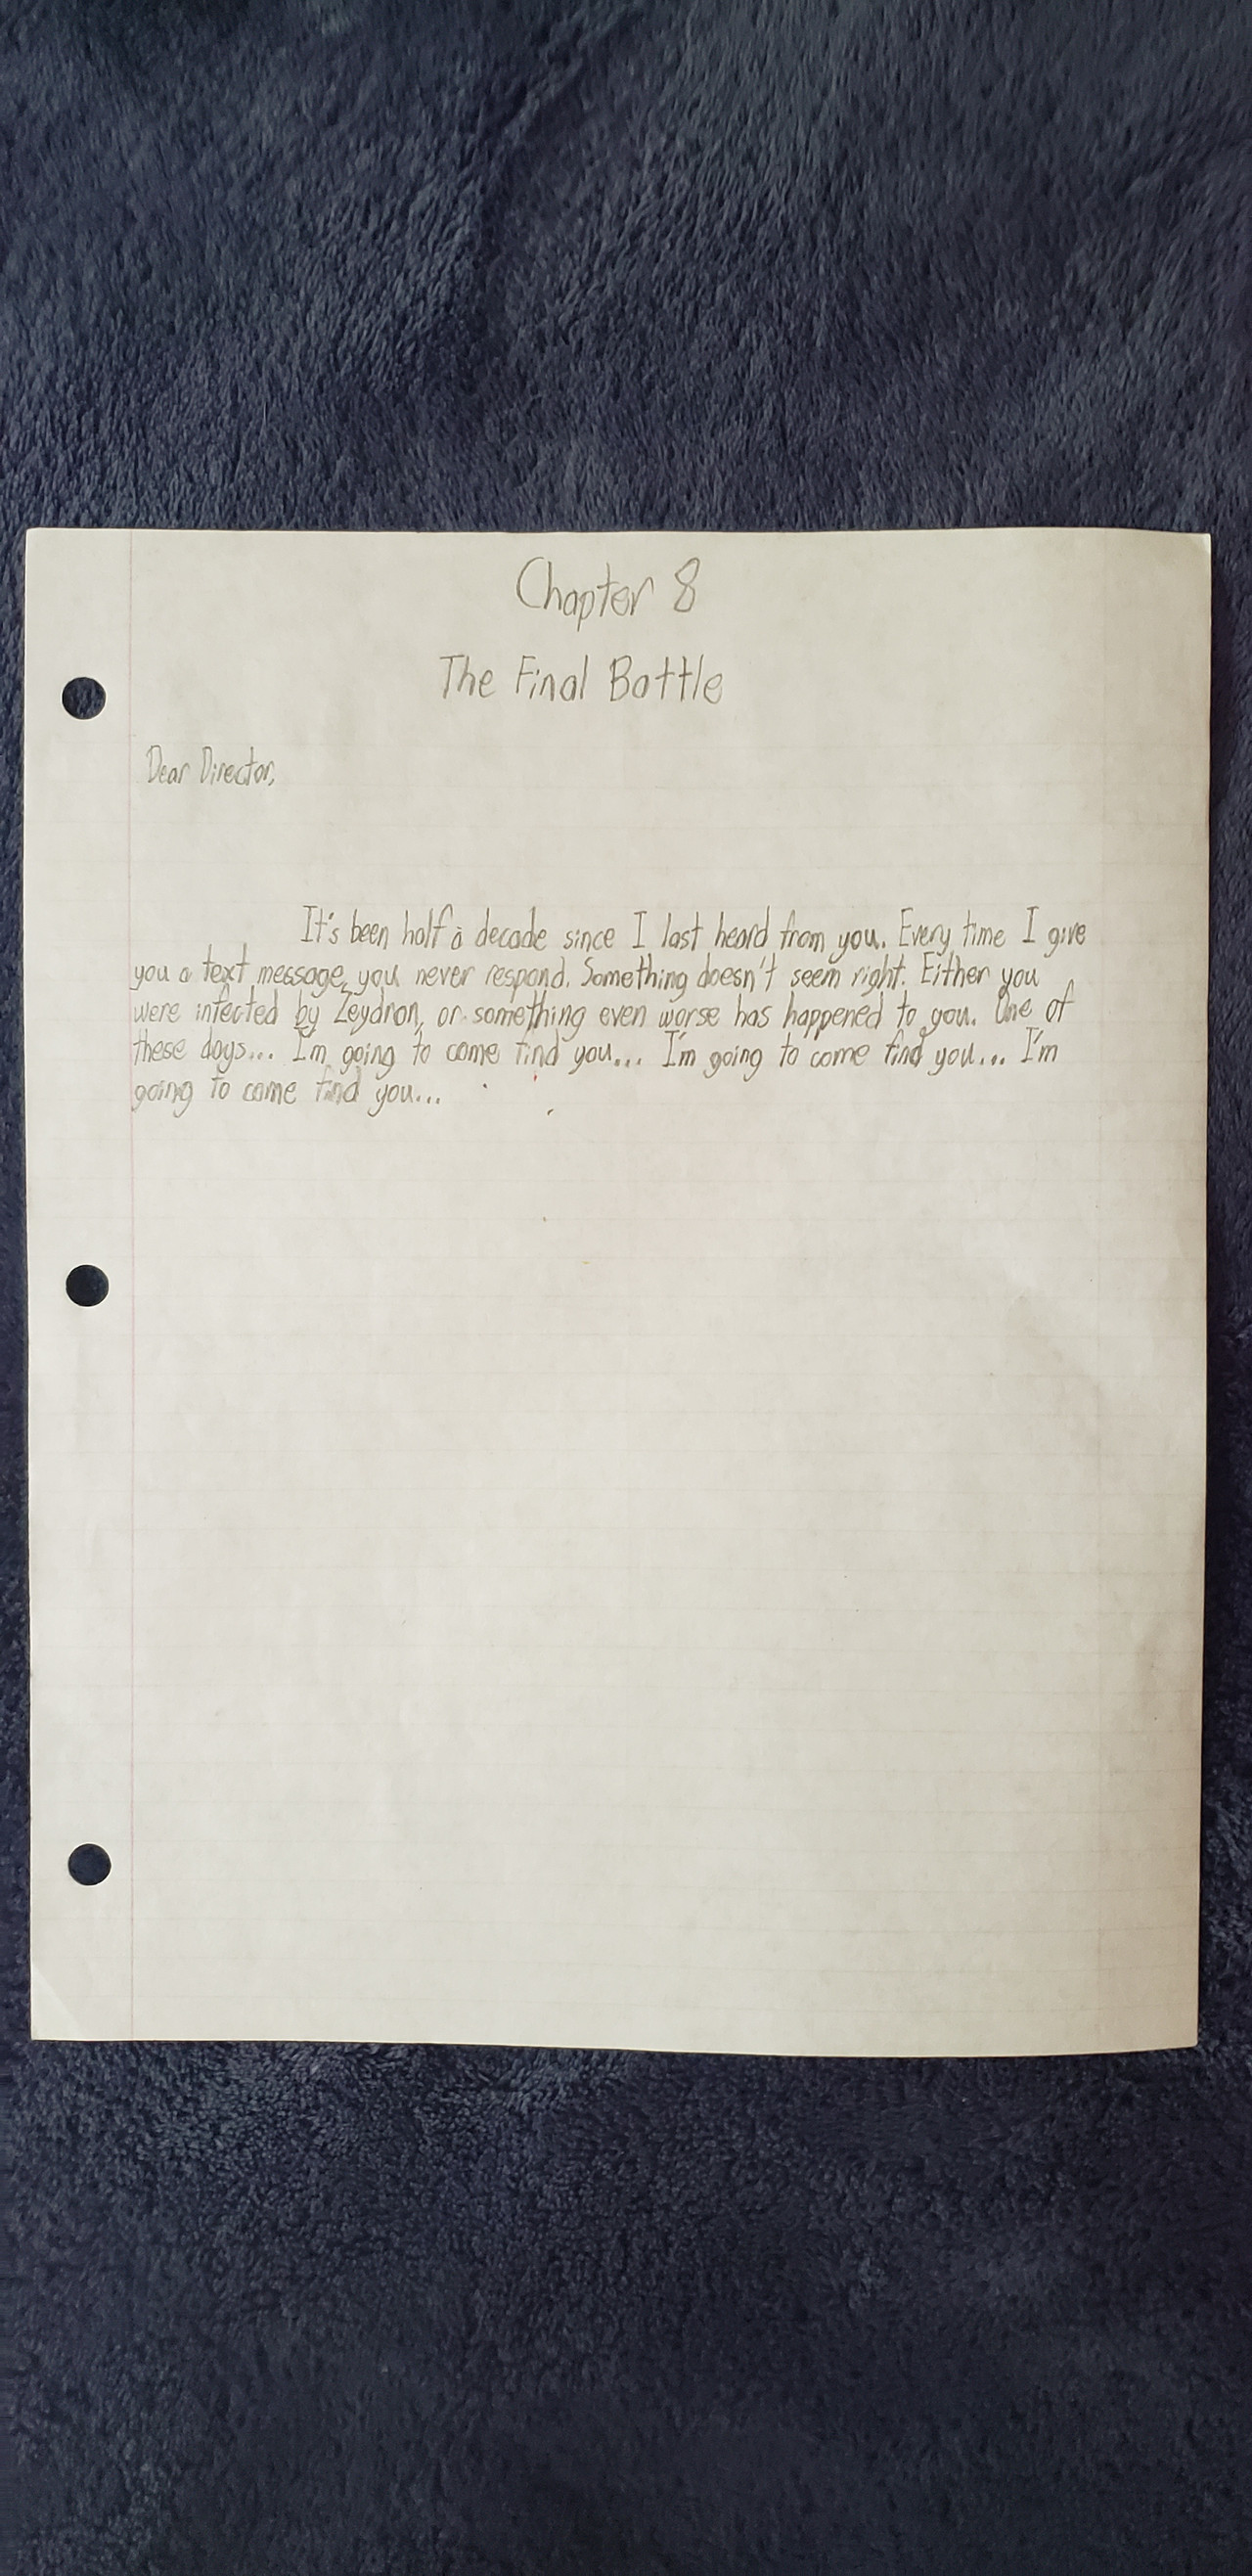 Chapter 8
The Final Battle
Dear Director,
It's been half a decade since I last heard from you. Every time I give
you a text message, you never respond. Something doesn't seem right. Either you
were infected by Zeydron, or something even worse has happened to you. One of
these days... I'm going to come find you... I'm going to come find you... I'm
going to come find you...